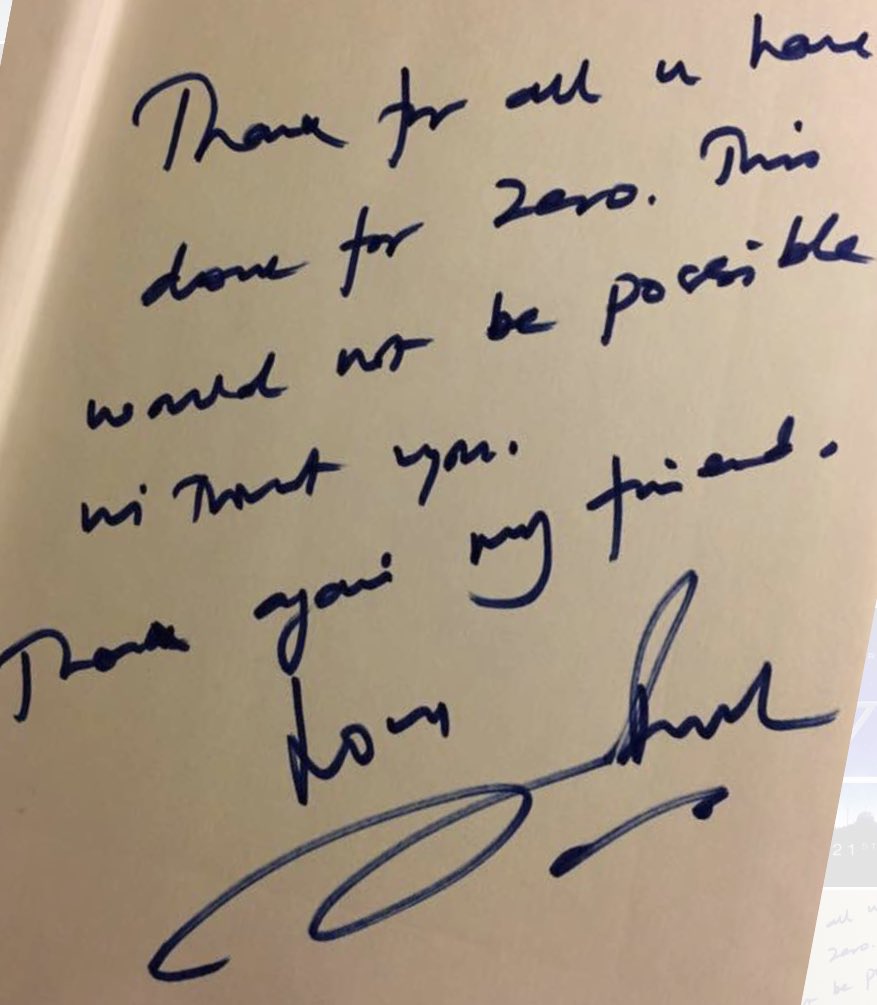 Thank for all u have
done for zero. This
would not be possible
without you.
Thank again my friend.
Love
21 51
all u
zero.
be p